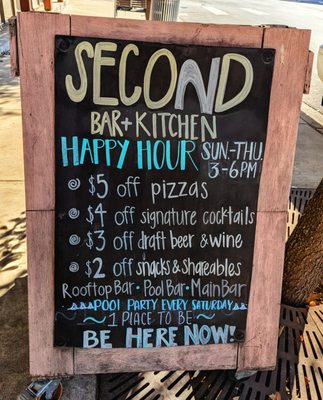 SECOND
BAR+KITCHEN
HAPPY HOUR SUN-THU.
3-6PM
$5 off pizzas
$4 off signature cocktails
$3 off draft beer & wine
$2 off snacks & shareables
Rooftop Bar · Pool Bar · Main Bar
POOL PARTY EVERY SATURDAY
1 PLACE TO BE:
BE HERE NOW!